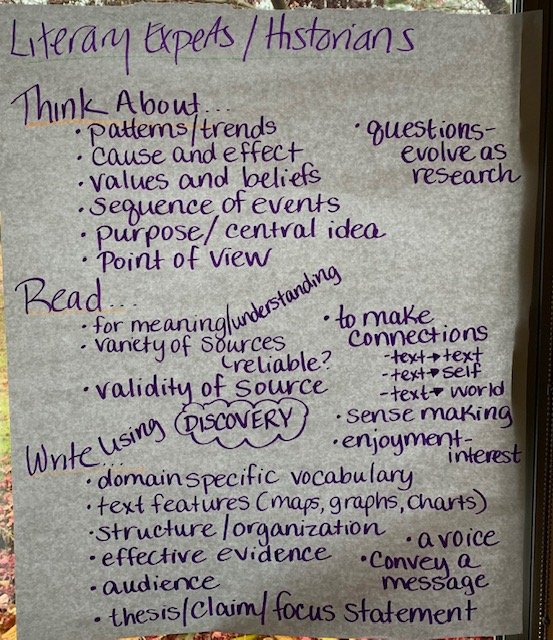 Literary Experts/Historians
Think About...
• patterns/trends
• cause and effect
• values and beliefs
• sequence of events
• purpose/central idea
• Point of view
• questions-
evolve as
research
Read...
• for meaning/understanding
• variety of sources
reliable?
• validity of source
DISCOVERY
• to make
connections
- text→text
- text→self
- text→world
• sense making
• enjoyment-
interest
Write using...
• domain specific vocabulary
• text features (maps, graphs, charts)
• structure/organization
• effective evidence
• audience
• thesis/claim/focus statement
• a voice
• convey a
message